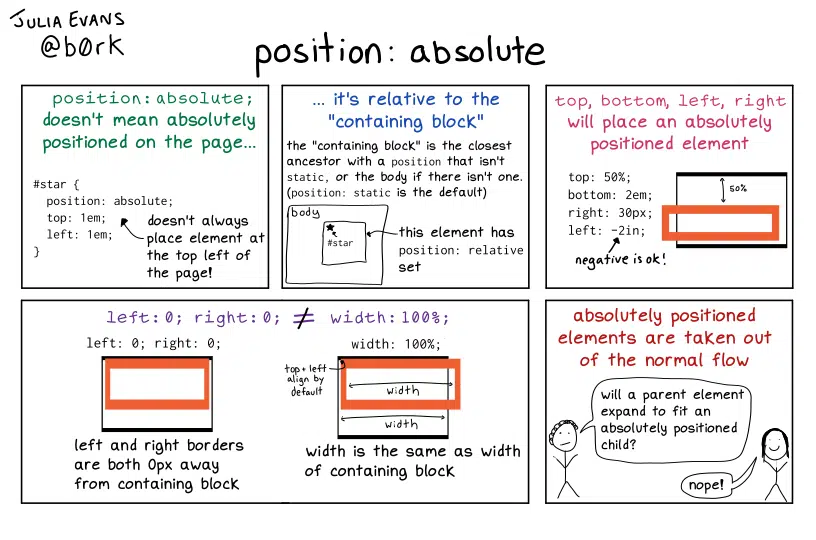 JULIA EVANS
@b0rk
position: absolute
position: absolute;
doesn't mean absolutely
positioned on the page...
#star {
position: absolute;
top: 1em;
left: 1em;
}
doesn't always
place element at
the top left of
the page!
... it's relative to the
"containing block"
the "containing block" is the closest
ancestor with a position that isn't
static, or the body if there isn't one.
(position: static is the default)
body
#star
this element has
position: relative
set
top, bottom, left, right
will place an absolutely
positioned element
top: 50%;
bottom: 2em;
right: 30px;
left: -2in;
negative is ok!
50%
left: 0; right: 0; ≠ width: 100%;
left: 0; right: 0;
left and right borders
are both 0px away
from containing block
width: 100%;
top + left
align by
default
width
width
width is the same as width
of containing block
absolutely positioned
elements are taken out
of the normal flow
will a parent element
expand to fit an
absolutely positioned
child?
nope!